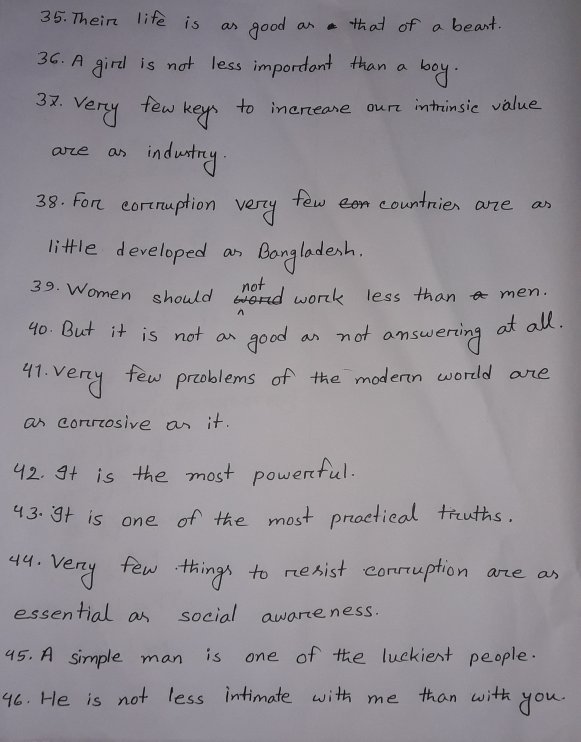 35. Their life is as good as that of a beast.
36. A girl is not less important than a boy.
37. Very few keys to increase our intrinsic value
are as industry.
38. For corruption very few countries are as
little developed as Bangladesh.
39. Women should not work less than men.
40. But it is not as good as not answering at all.
41. Very few problems of the modern world are
as corrosive as it.
42. It is the most powerful.
43. It is one of the most practical truths.
44. Very few things to resist corruption are as
essential as social awareness.
45. A simple man is one of the luckiest people.
46. He is not less intimate with me than with you.